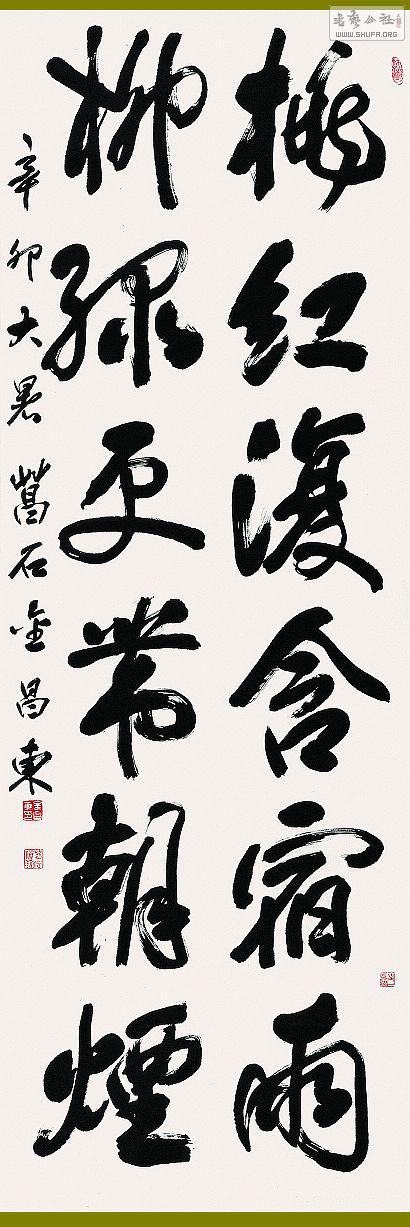 桃红復含宿雨
柳绿更带朝煙
辛卯大暑菖石金昌東
書藝公社
WWW.SHUFA.ORG